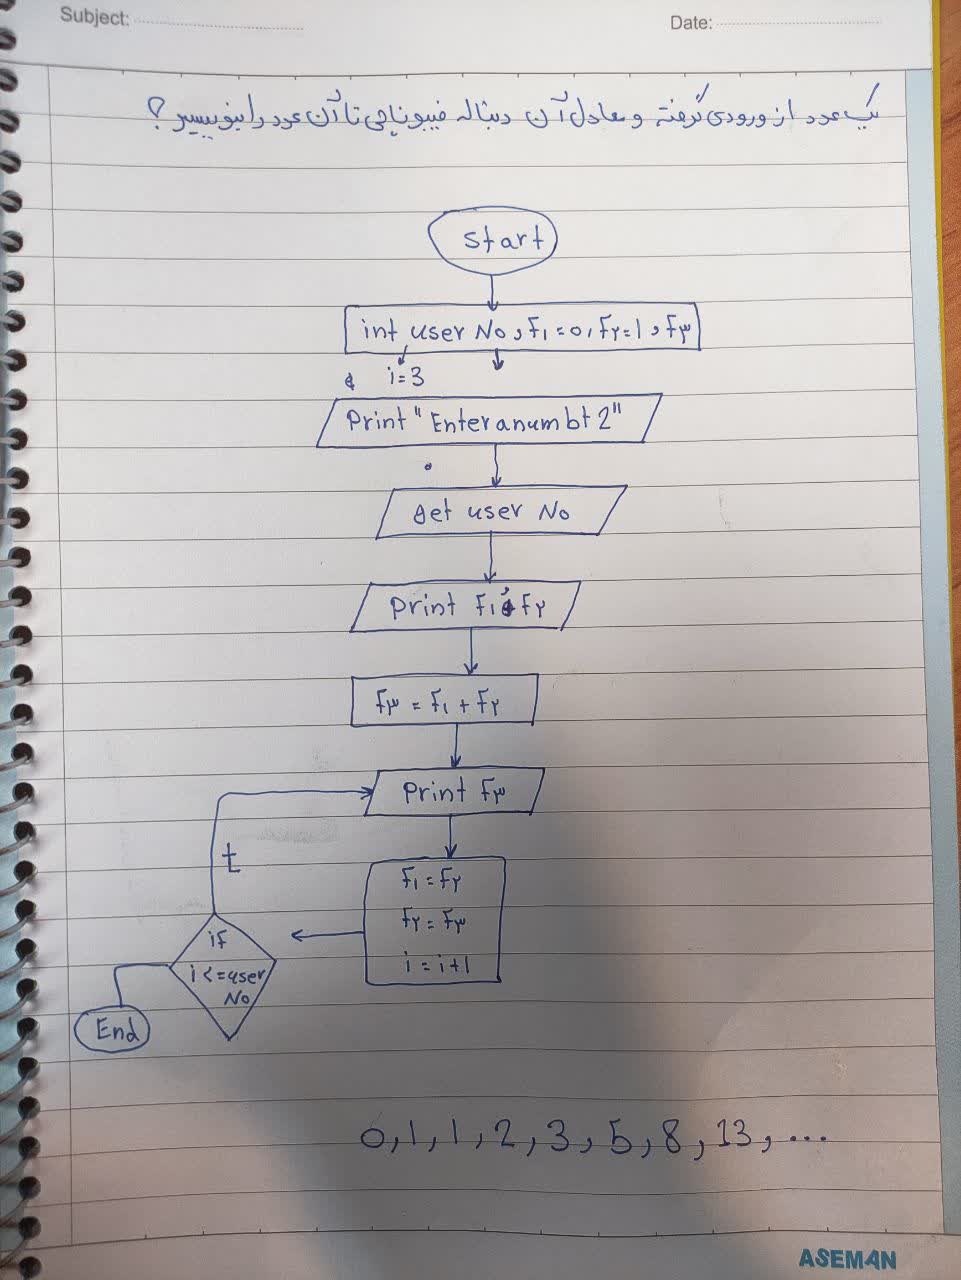 Subject:
Date:
یک عدد از ورودی گرفته و معادل آن دنباله فیبوناچی تا آن عدد را بنویسید؟
Start
int user No, F۱=0, F۲=1, F۳
i=3
Print "Enter a numbt 2"
get user No
Print F۱, F۲
F۳ = F۱ + F۲
Print F۳
t
F۱ = F۲
F۲ = F۳
i = i+1
if
i <= user
No
End
0, 1, 1, 2, 3, 5, 8, 13, ...
ASEMAN